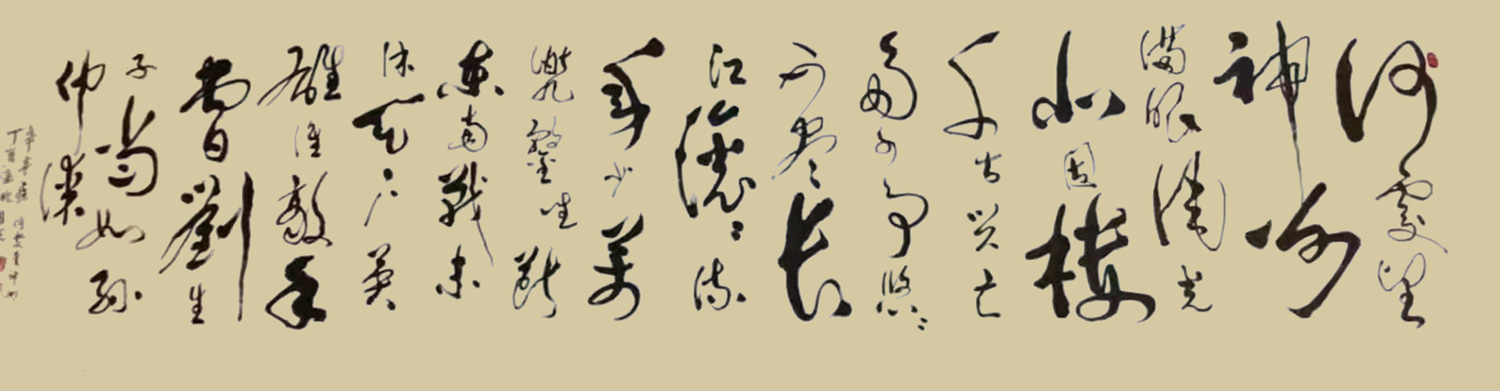 何處望
神州
滿眼風光
北固樓
千古興亡
多少事悠悠
不盡長
江滾滾流
年少萬
兜鍪坐斷
東南戰未
休天下英
雄誰敵手
曹劉生
子當如孫
仲謀
辛弃疾
丁酉